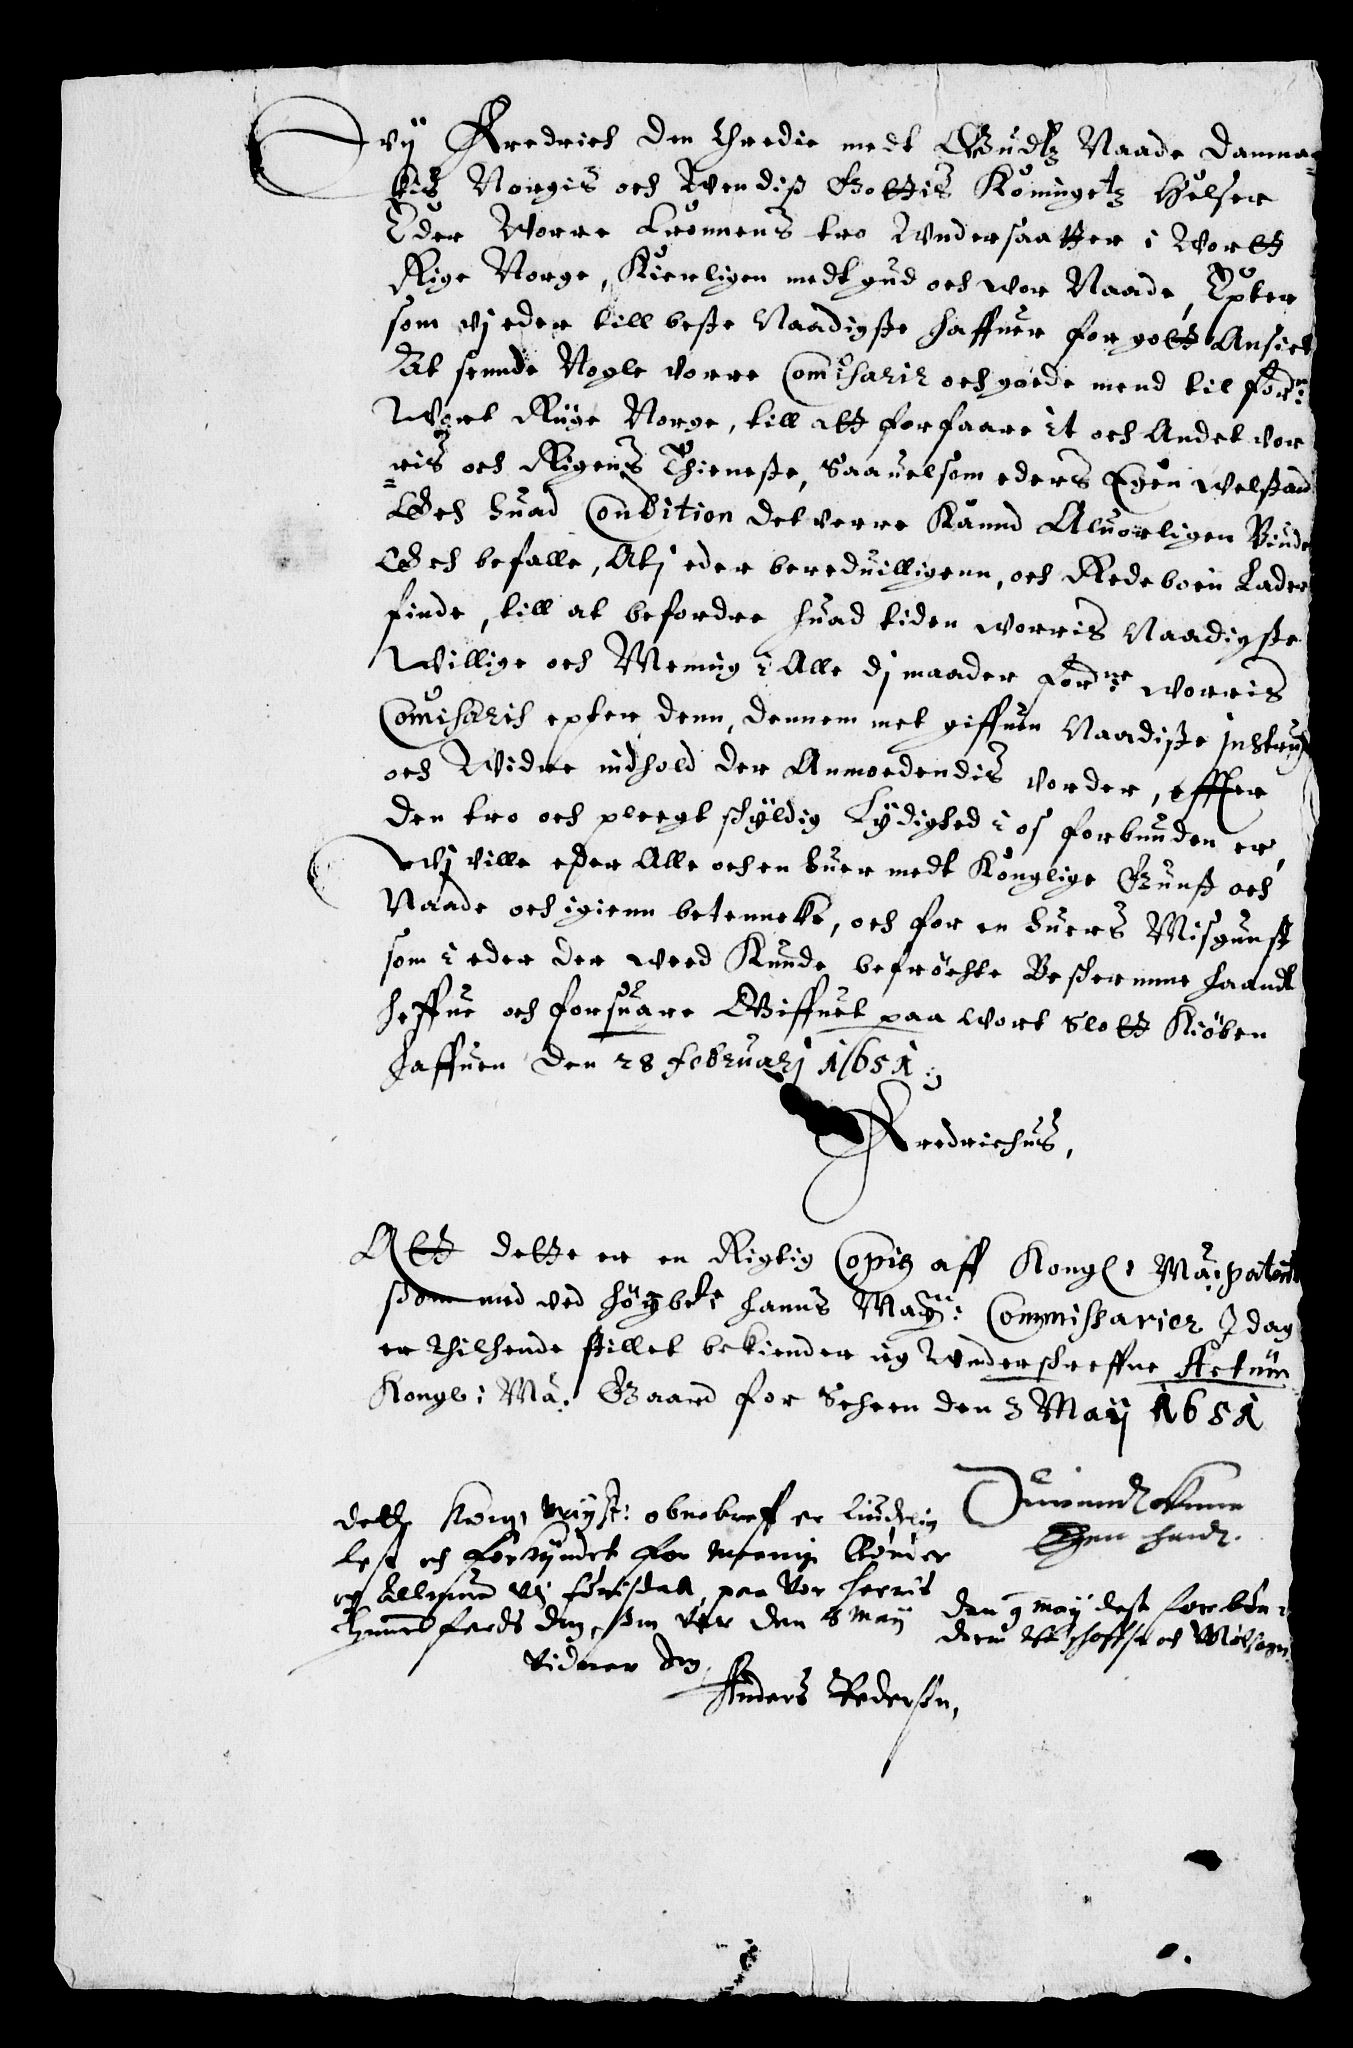 Wy Fredrich den thredie medt Gudtz Naade Danma=
kis Norgis och Wendiß Gottis Koningetz Helser
Eder Worre Cronnens tro Wndersaatter i Wortt
Rige Norge, Kierligen medt gud och wor Naade, Epter
som vj eder till beste Naadigste haffuer forgott Ansiet
At sennde Nogle vorre Comisarir och goede mend til fordn:
Wort Riige Norge, till att forfaare it och Andet vor
=ris och Rigens Thieneste, Saauelsom eders Egen welstand
Och huad Condition det verre kannd Aluorligen Biude
Och befalle, At j eder bereduilligenn, och Redeboen Lader
finde, till at befordre huad tiden worris Naadigste
Willige och Mening i Alle dj maader fordne: worris
Comisaris epter denn, dennem met giffuen Naadiste instrux
och Widre indhold der Anmoedendis vorder, effter
den tro och pleegt schyldig Lydighed i os forbunden er,
Wj ville eder Alle och en huer medt Konglige Gunst och
Naade och igienn betenncke, och for en huers Misgunst
som i eder der weed kunde befröchte Beskermme haandt
heffue och forsuare Giffuet paa wort Slott Kiöben
haffuen den 28 februarj 1651.
Fredrichus,
Att dette er en Rigtig Copie aff Kongl: Ma: patent
som med ved högbete hanns Maytt: Commissarier I dag
er thilhende stillet bekiender ieg Wnderschreffne Actum
Kongl: Ma. Gaard for Scheen den 3 Maij 1651
Egen haand.
dette Kong: Mayst: obnebreff er liudelig
lest och forkyndet for menige Bönder
og Allmue vdj paa Vor herris
himmelfards dag, som var den 8 May
Vidner Ieg
Anders Pedersen,
den 9 may lest for bön=
dern och